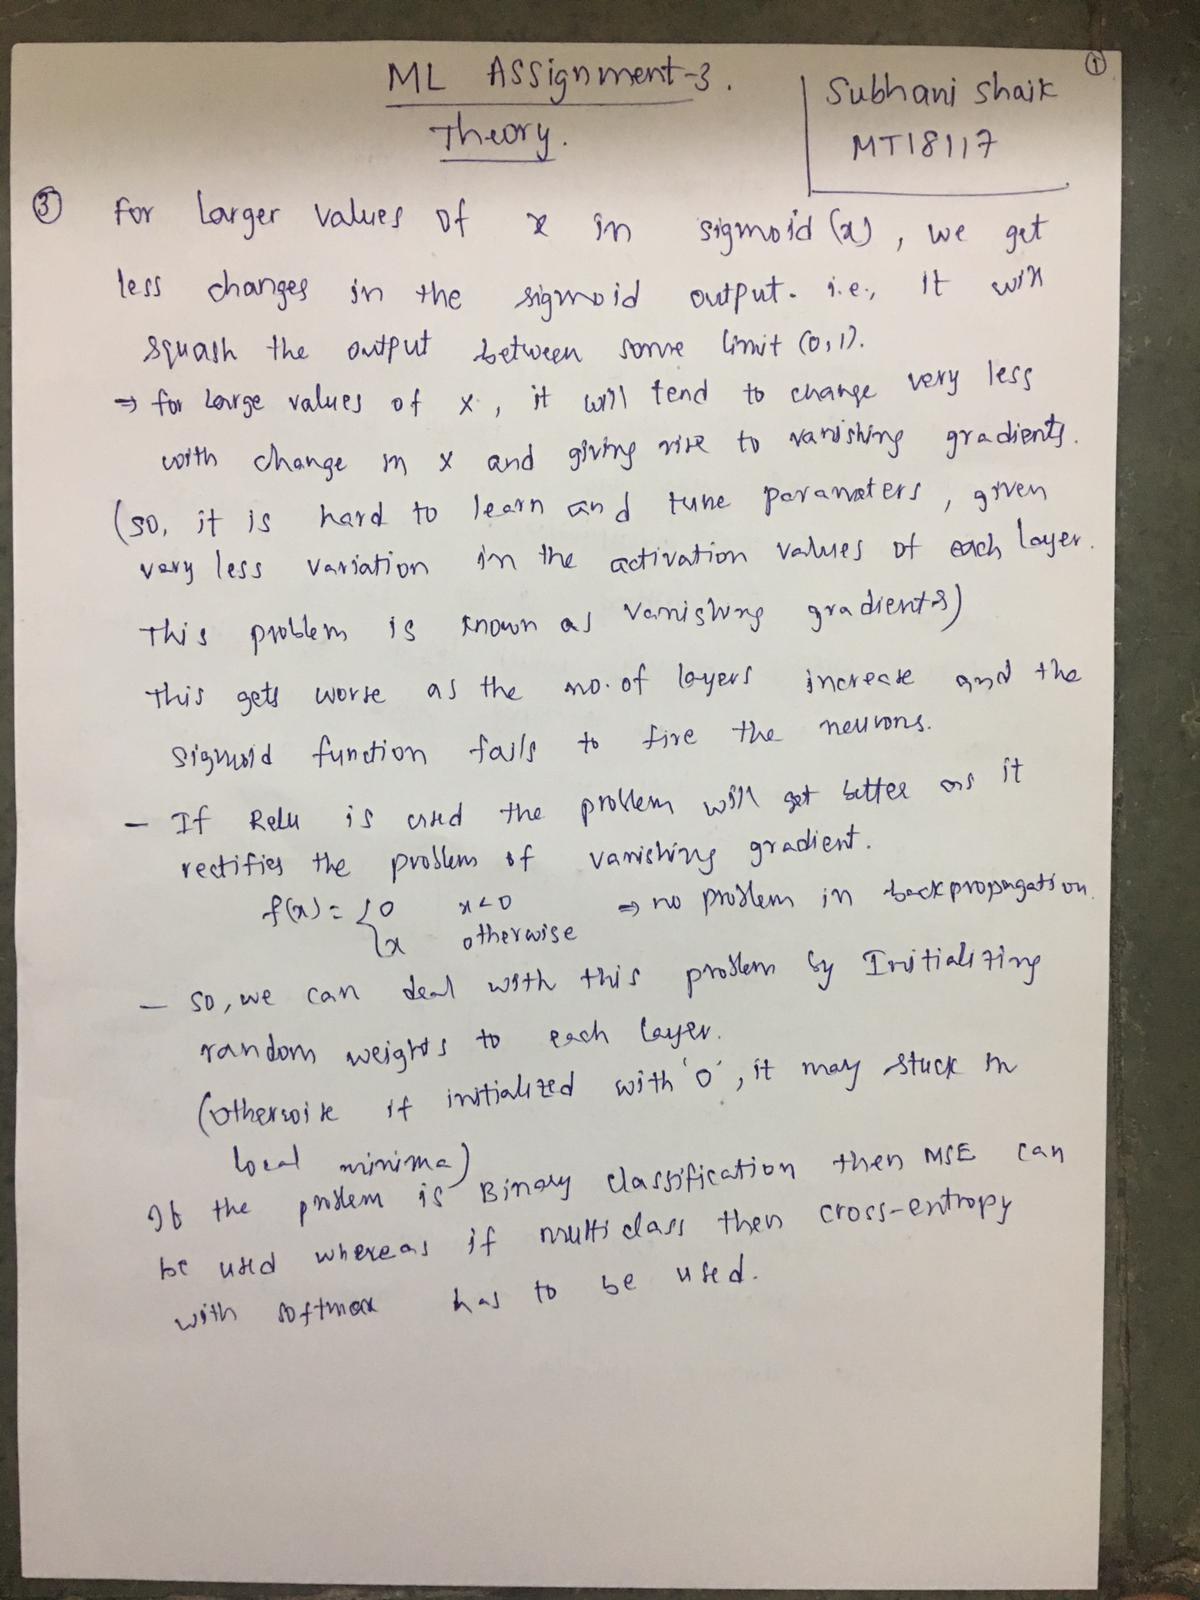 ①
ML Assignment-3.
Theory.
Subhani Shaik
MT18117
③ For larger values of x in sigmoid (x), we get
less changes in the sigmoid output. i.e., it will
squash the output between some limit (0,1).
⇒ for large values of x, it will tend to change very less
with change in x and giving rise to vanishing gradients.
(so, it is hard to learn and tune parameters, given
very less variation in the activation values of each layer.
This problem is known as vanishing gradients)
This gets worse as the no. of layers increase and the
sigmoid function fails to fire the neurons.
- If Relu is used the problem will get better as it
rectifies the problem of vanishing gradient.
f(x) = { 0 x<0 ⇒ no problem in backpropagation.
x otherwise
- So, we can deal with this problem by Initializing
random weights to each layer.
(otherwise if initialized with '0', it may stuck in
local minima)
If the problem is Binary classification then MSE can
be used whereas if multi class then cross-entropy
with softmax has to be used.